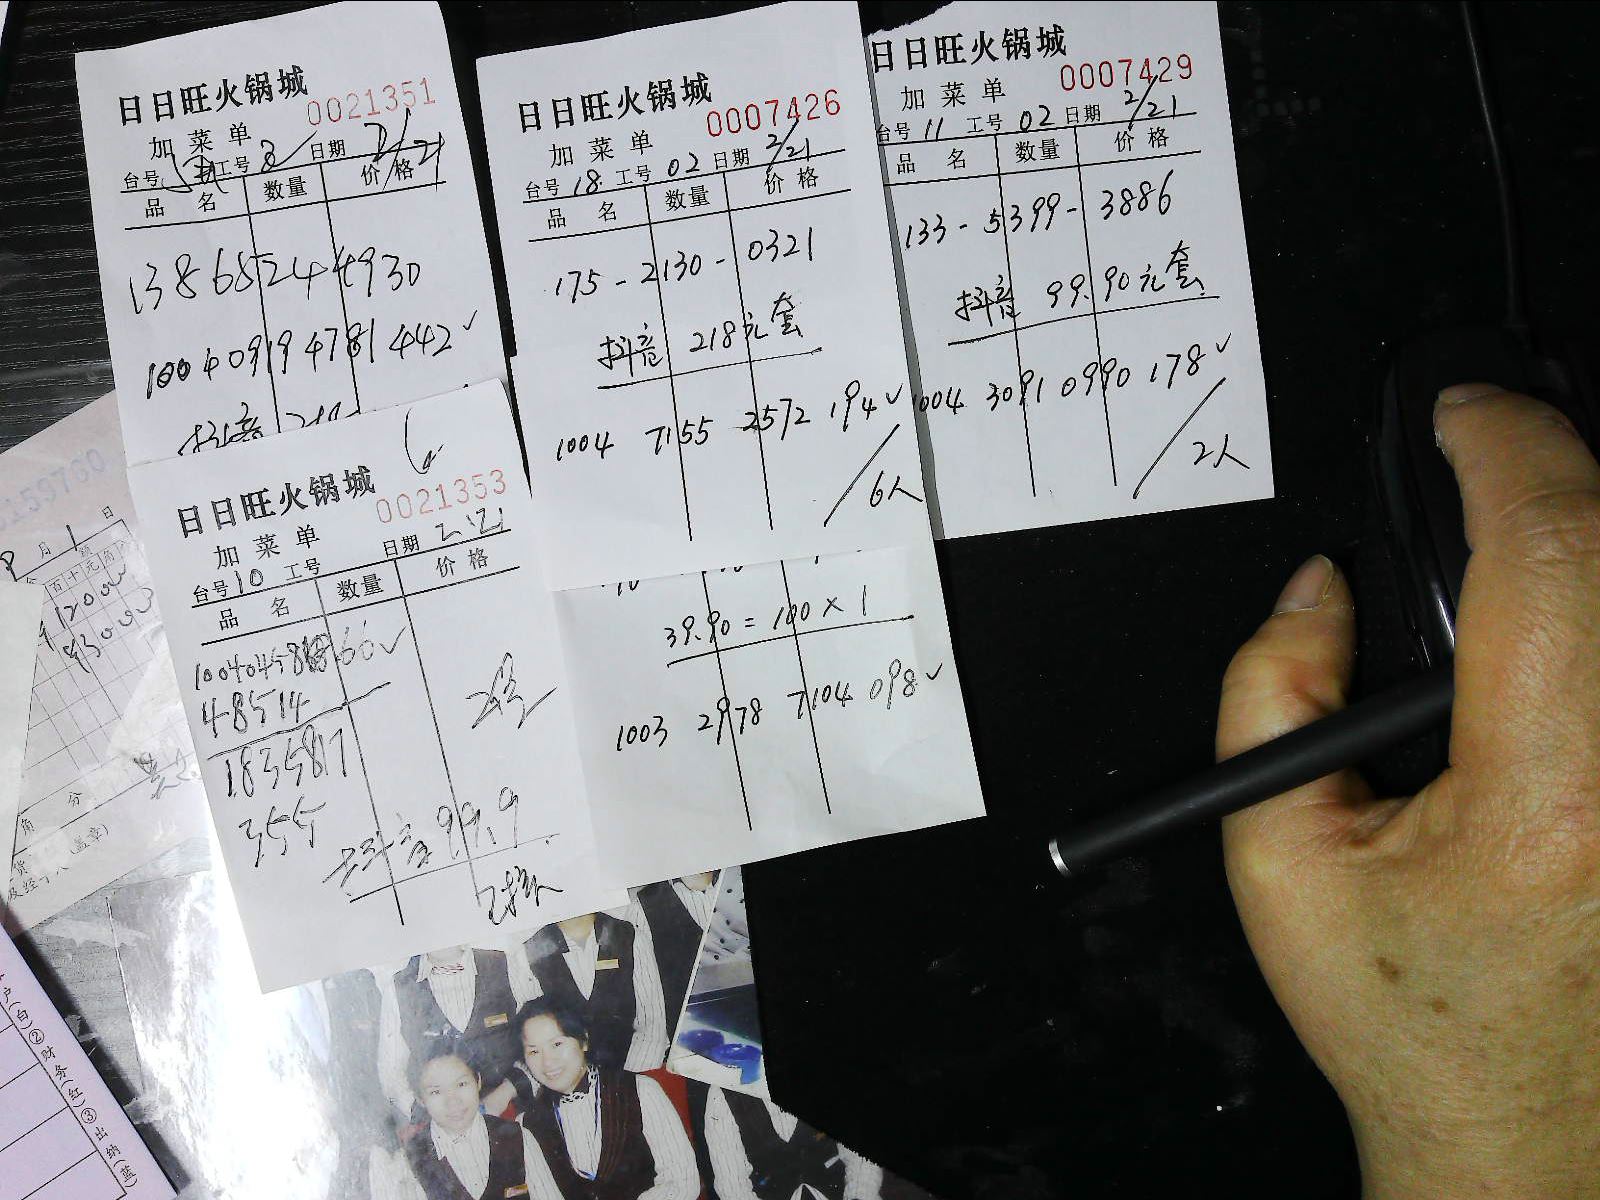 日日旺火锅城
0021351
加菜单
台号 工号 日期 2/21
品名 数量 价格
13865244930
1004 0919 4781 442✓
抖音
日日旺火锅城
0007426
加菜单
台号 18 工号 02 日期 2/21
品名 数量 价格
175-2130-0321
抖音 218元套
1004 7155 2572 194✓
6人
日日旺火锅城
0007429
加菜单
台号 11 工号 02 日期 2/21
品名 数量 价格
133-5399-3886
抖音 99.90元套
1004 3091 0990 178✓
2人
日日旺火锅城
0021353
加菜单
台号 10 工号 日期 2.21
品名 数量 价格
48514
1835817
355
抖音99.9
39.90=100×1
1003 2978 7104 098✓
月 1 日
百十元角
角 分
(盖章)
户(白)②财务(红)③出纳(蓝)